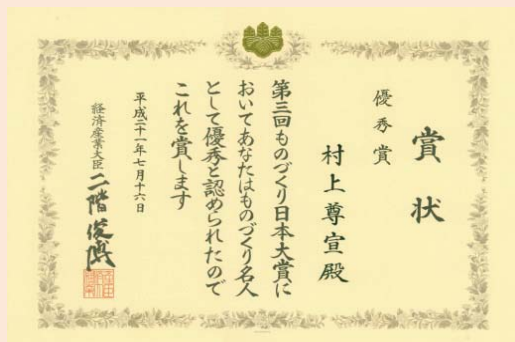 賞状
優秀賞
村上尊宣殿
第三回ものづくり日本大賞に
おいてあなたはものづくり名人
として優秀と認められたので
これを賞します
平成二十一年七月十六日
経済産業大臣 二階俊博